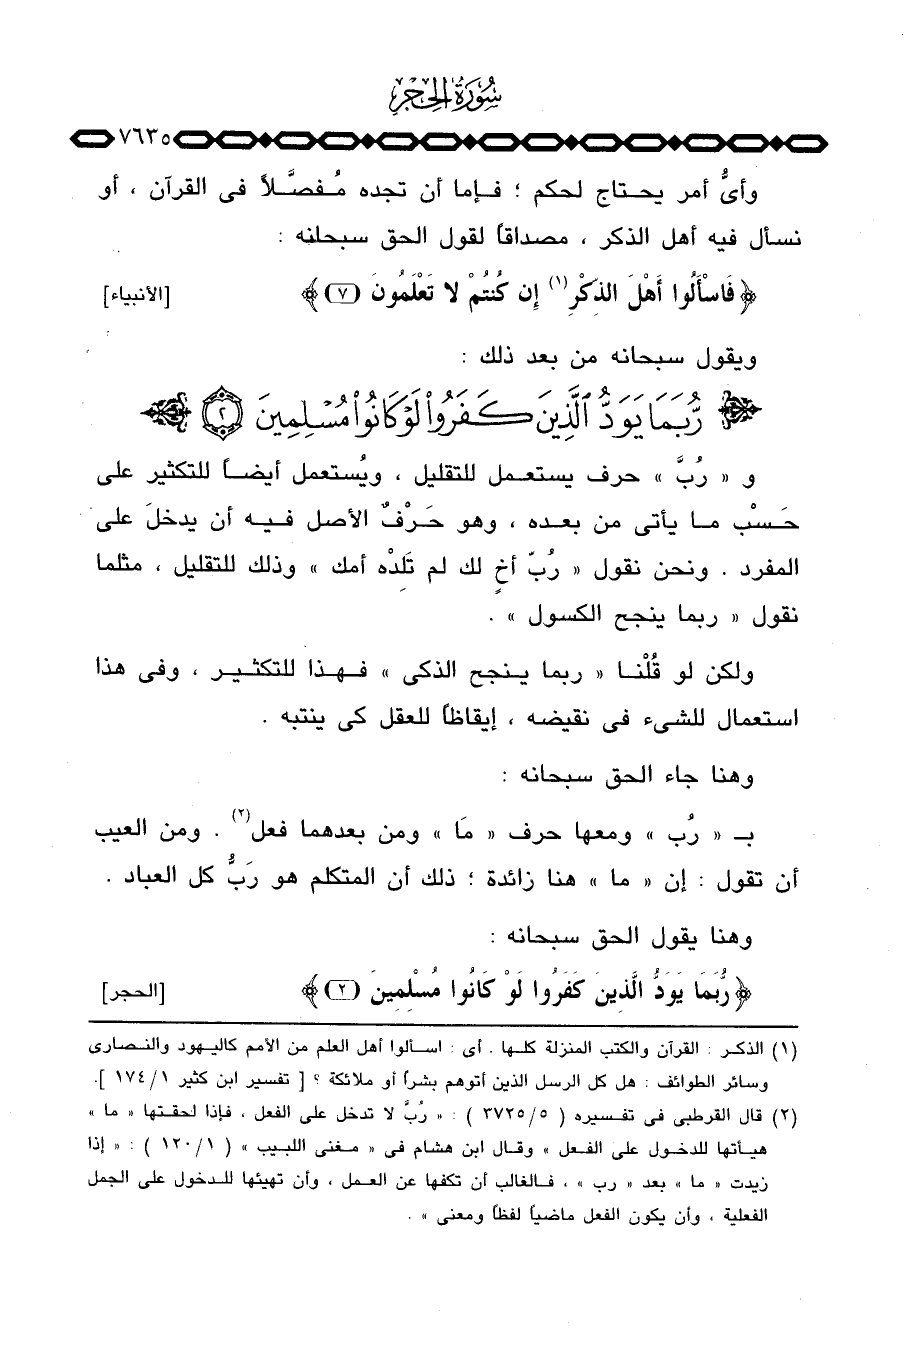 سُورَةُ الحِجْرِ
٧٦٣٥
وأىُّ أمر يحتاج لحكم ؛ فإما أن تجده مُفصَّلاً فى القرآن ، أو
نسأل فيه أهل الذكر ، مصداقاً لقول الحق سبحانه :
﴿ فَاسْأَلُوا أَهْلَ الذِّكْرِ(١) إِن كُنتُمْ لا تَعْلَمُونَ (٧) ﴾ [الأنبياء]
ويقول سبحانه من بعد ذلك :
﴿ رُّبَمَا يَوَدُّ ٱلَّذِينَ كَفَرُواْ لَوْ كَانُواْ مُسْلِمِينَ ٢ ﴾
و « رُبَّ » حرف يستعمل للتقليل ، ويُستعمل أيضاً للتكثير على
حَسْب ما يأتى من بعده ، وهو حَرْفٌ الأصل فيه أن يدخلَ على
المفرد . ونحن نقول « رُبّ أخٍ لك لم تَلِدْه أمك » وذلك للتقليل ، مثلما
نقول « ربما ينجح الكسول » .
ولكن لو قُلْنا « ربما ينجح الذكى » فهذا للتكثير ، وفى هذا
استعمال للشىء فى نقيضه ، إيقاظاً للعقل كى ينتبه .
وهنا جاء الحق سبحانه :
بـ « رُب » ومعها حرف « مَا » ومن بعدهما فعل(٢) . ومن العيب
أن تقول : إن « ما » هنا زائدة ؛ ذلك أن المتكلم هو رَبُّ كل العباد .
وهنا يقول الحق سبحانه :
﴿ رُّبَمَا يَوَدُّ الَّذِينَ كَفَرُوا لَوْ كَانُوا مُسْلِمِينَ (٢) ﴾ [الحجر]
(١) الذكر : القرآن والكتب المنزلة كلها . أى : اسألوا أهل العلم من الأمم كاليهود والنصارى
وسائر الطوائف : هل كل الرسل الذين أتوهم بشراً أو ملائكة ؟ [ تفسير ابن كثير ١٧٤/١ ].
(٢) قال القرطبى فى تفسيره ( ٣٧٢٥/٥ ) : « رُبَّ لا تدخل على الفعل ، فإذا لحقتها « ما »
هيأتها للدخول على الفعل » وقال ابن هشام فى « مغنى اللبيب » ( ١٢٠/١ ) : « إذا
زيدت « ما » بعد « رب » ، فالغالب أن تكفها عن العمل ، وأن تهيئها للدخول على الجمل
الفعلية ، وأن يكون الفعل ماضياً لفظاً ومعنى » .